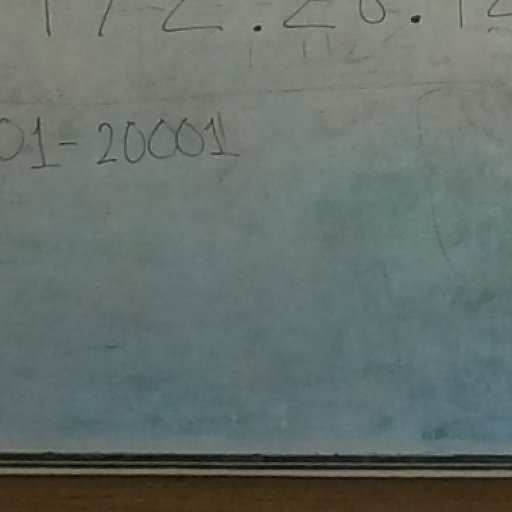 172.20.12
01-20001